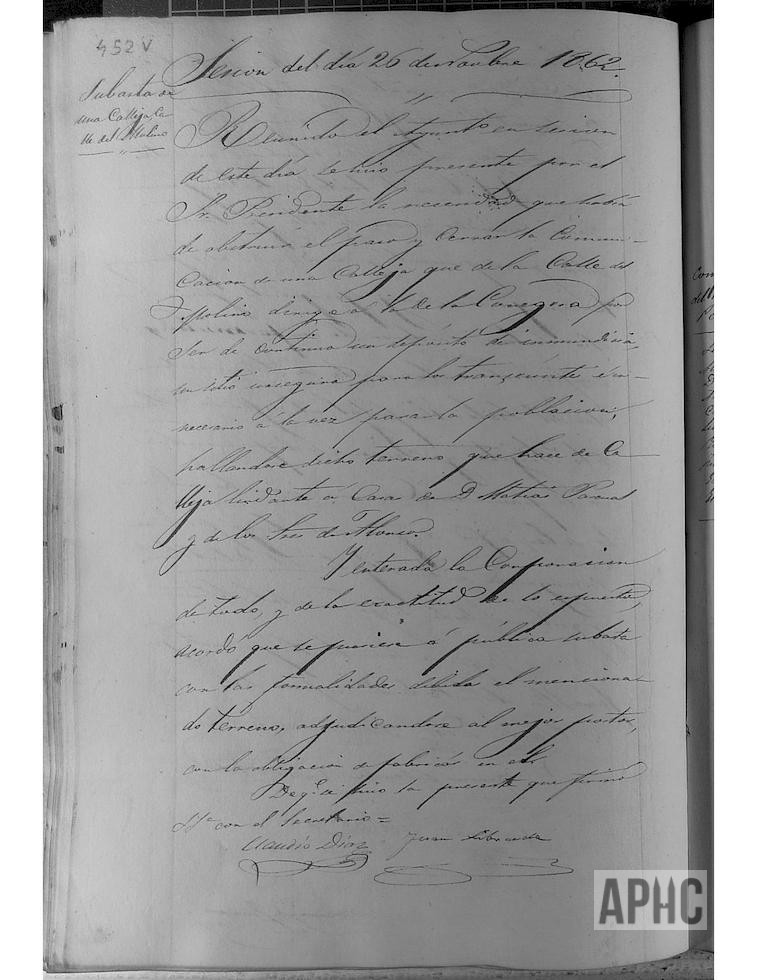 452 V
Sesion del día 26 de Noubre 1862.
Subasta de
una Calleja, Ca-
lle del Molino
Reunido el Ayunto en sesion
de este dia se hizo presente por el
Sr. Presidente la necesidad que habia
de obstruir el paso y cerrar la Comuni-
cacion de una Calleja que de la Calle del
Molino dirige a la de la Canegra por
ser de continuo un deposito de inmundicia,
un sitio inseguro para los transeunte é in-
necesario á la vez para la poblacion,
hallandose dicho terreno que hace de Ca-
lleja lindante á Casas de D. Matias Pascual
y de los Sres de Alonso.
Y enterada la Corporacion
de todo, y de la exactitud de lo espuesto,
acordó que se pusiese á pública subasta
con las formalidades debidas el menciona-
do terreno, adjudicandose al mejor postor,
con la obligacion de fabricar en el.
De q.e se hizo la presente que firmó
S.S.a con el Secretario =
Claudio Diaz
Juan
APHC